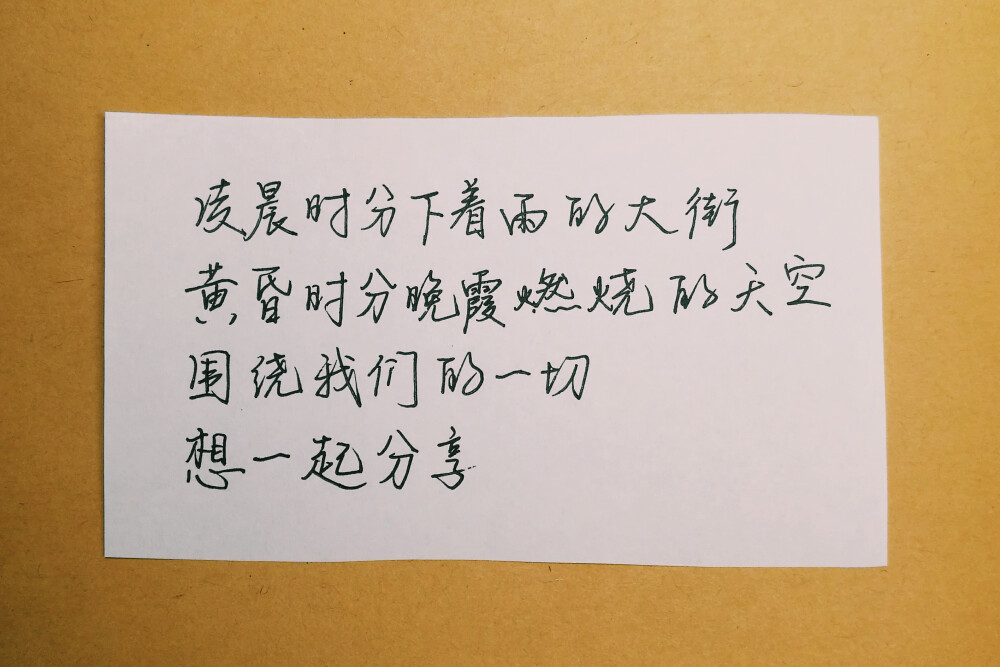 凌晨时分下着雨的大街
黄昏时分晚霞燃烧的天空
围绕我们的一切
想一起分享